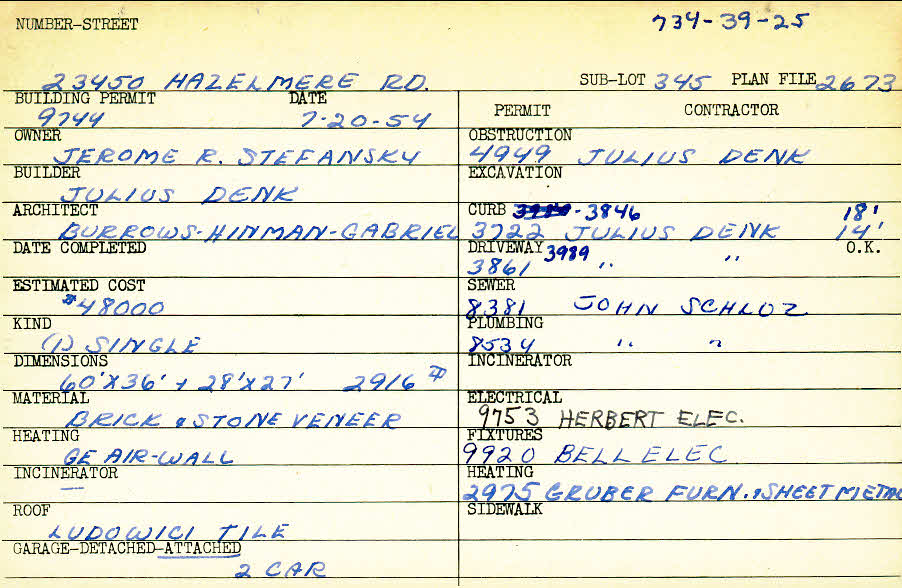 NUMBER-STREET 734-39-25
23450 HAZELMERE RD. SUB-LOT 345 PLAN FILE 2673
BUILDING PERMIT DATE
9744 7-20-54
OWNER
JEROME R. STEFANSKY
BUILDER
JULIUS DENK
ARCHITECT
BURROWS-HINMAN-GABRIEL
DATE COMPLETED
ESTIMATED COST
$48000
KIND
(1) SINGLE
DIMENSIONS
60'X36' + 28'X27' 2916
MATERIAL
BRICK & STONE VENEER
HEATING
GE AIR-WALL
INCINERATOR
—
ROOF
LUDOWICI TILE
GARAGE-DETACHED-ATTACHED
2 CAR
PERMIT CONTRACTOR
OBSTRUCTION
4949 JULIUS DENK
EXCAVATION
CURB -3846 18'
3722 JULIUS DENK 14'
DRIVEWAY 3989 O.K.
3861 " "
SEWER
8381 JOHN SCHLOZ
PLUMBING
8534 " "
INCINERATOR
ELECTRICAL
9753 HERBERT ELEC.
FIXTURES
9920 BELL ELEC
HEATING
2975 GRUBER FURN. & SHEET METAL
SIDEWALK